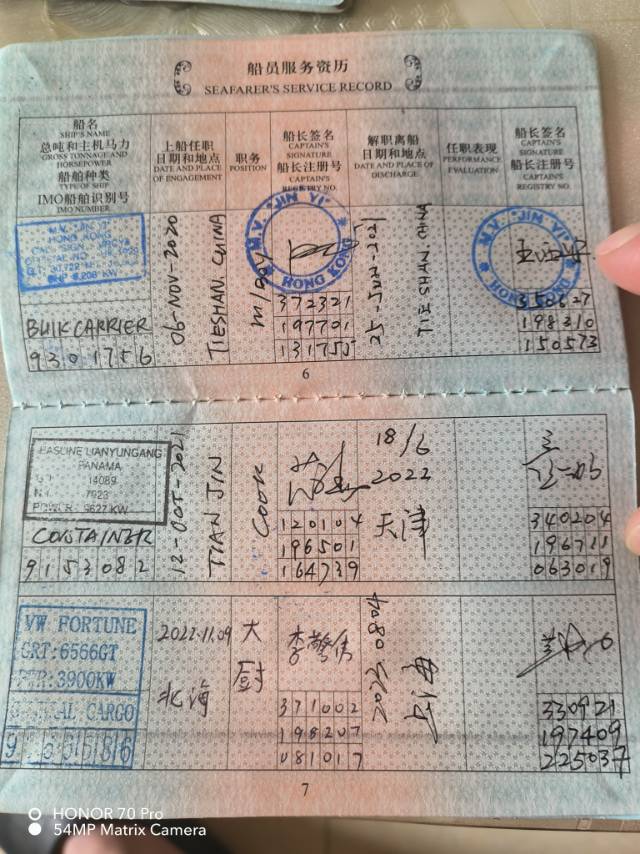 船员服务资历
SEAFARER'S SERVICE RECORD
船名
SHIP'S NAME
总吨和主机马力
GROSS TONNAGE AND
HORSEPOWER
船舶种类
TYPE OF SHIP
IMO船舶识别号
IMO NUMBER
上船任职
日期和地点
DATE AND PLACE
OF ENGAGEMENT
职务
POSITION
船长签名
CAPTAIN'S
SIGNATURE
船长注册号
CAPTAIN'S
REGISTRY NO.
解职离船
日期和地点
DATE AND PLACE OF
DISCHARGE
任职表现
PERFORMANCE
EVALUATION
船长签名
CAPTAIN'S
SIGNATURE
船长注册号
CAPTAIN'S
REGISTRY NO.
M.V. "JIN YI"
HONG KONG
BULKCARRIER
9301756
06-NOV-2020
TIESHAN. CHINA
M.V. "JIN YI"
HONG KONG
372321
197701
131755
25-JUN-2021
TIESHAN CHINA
M.V. "JIN YI"
HONG
350627
198310
150573
6
EASLINE LIANYUNGANG
PANAMA
14089
7923
POWER: 9627 KW
CONTAINER
9153082
12-OCT-2021
TIANJIN
COOK
120104
196501
164739
18/6
2022
天津
340204
196711
063019
VW FORTUNE
GRT:6566GT
3900KW
CARGO
2022.11.09
北海
大
厨
371002
198207
081017
上海
330921
197409
225037
7
HONOR 70 Pro
54MP Matrix Camera